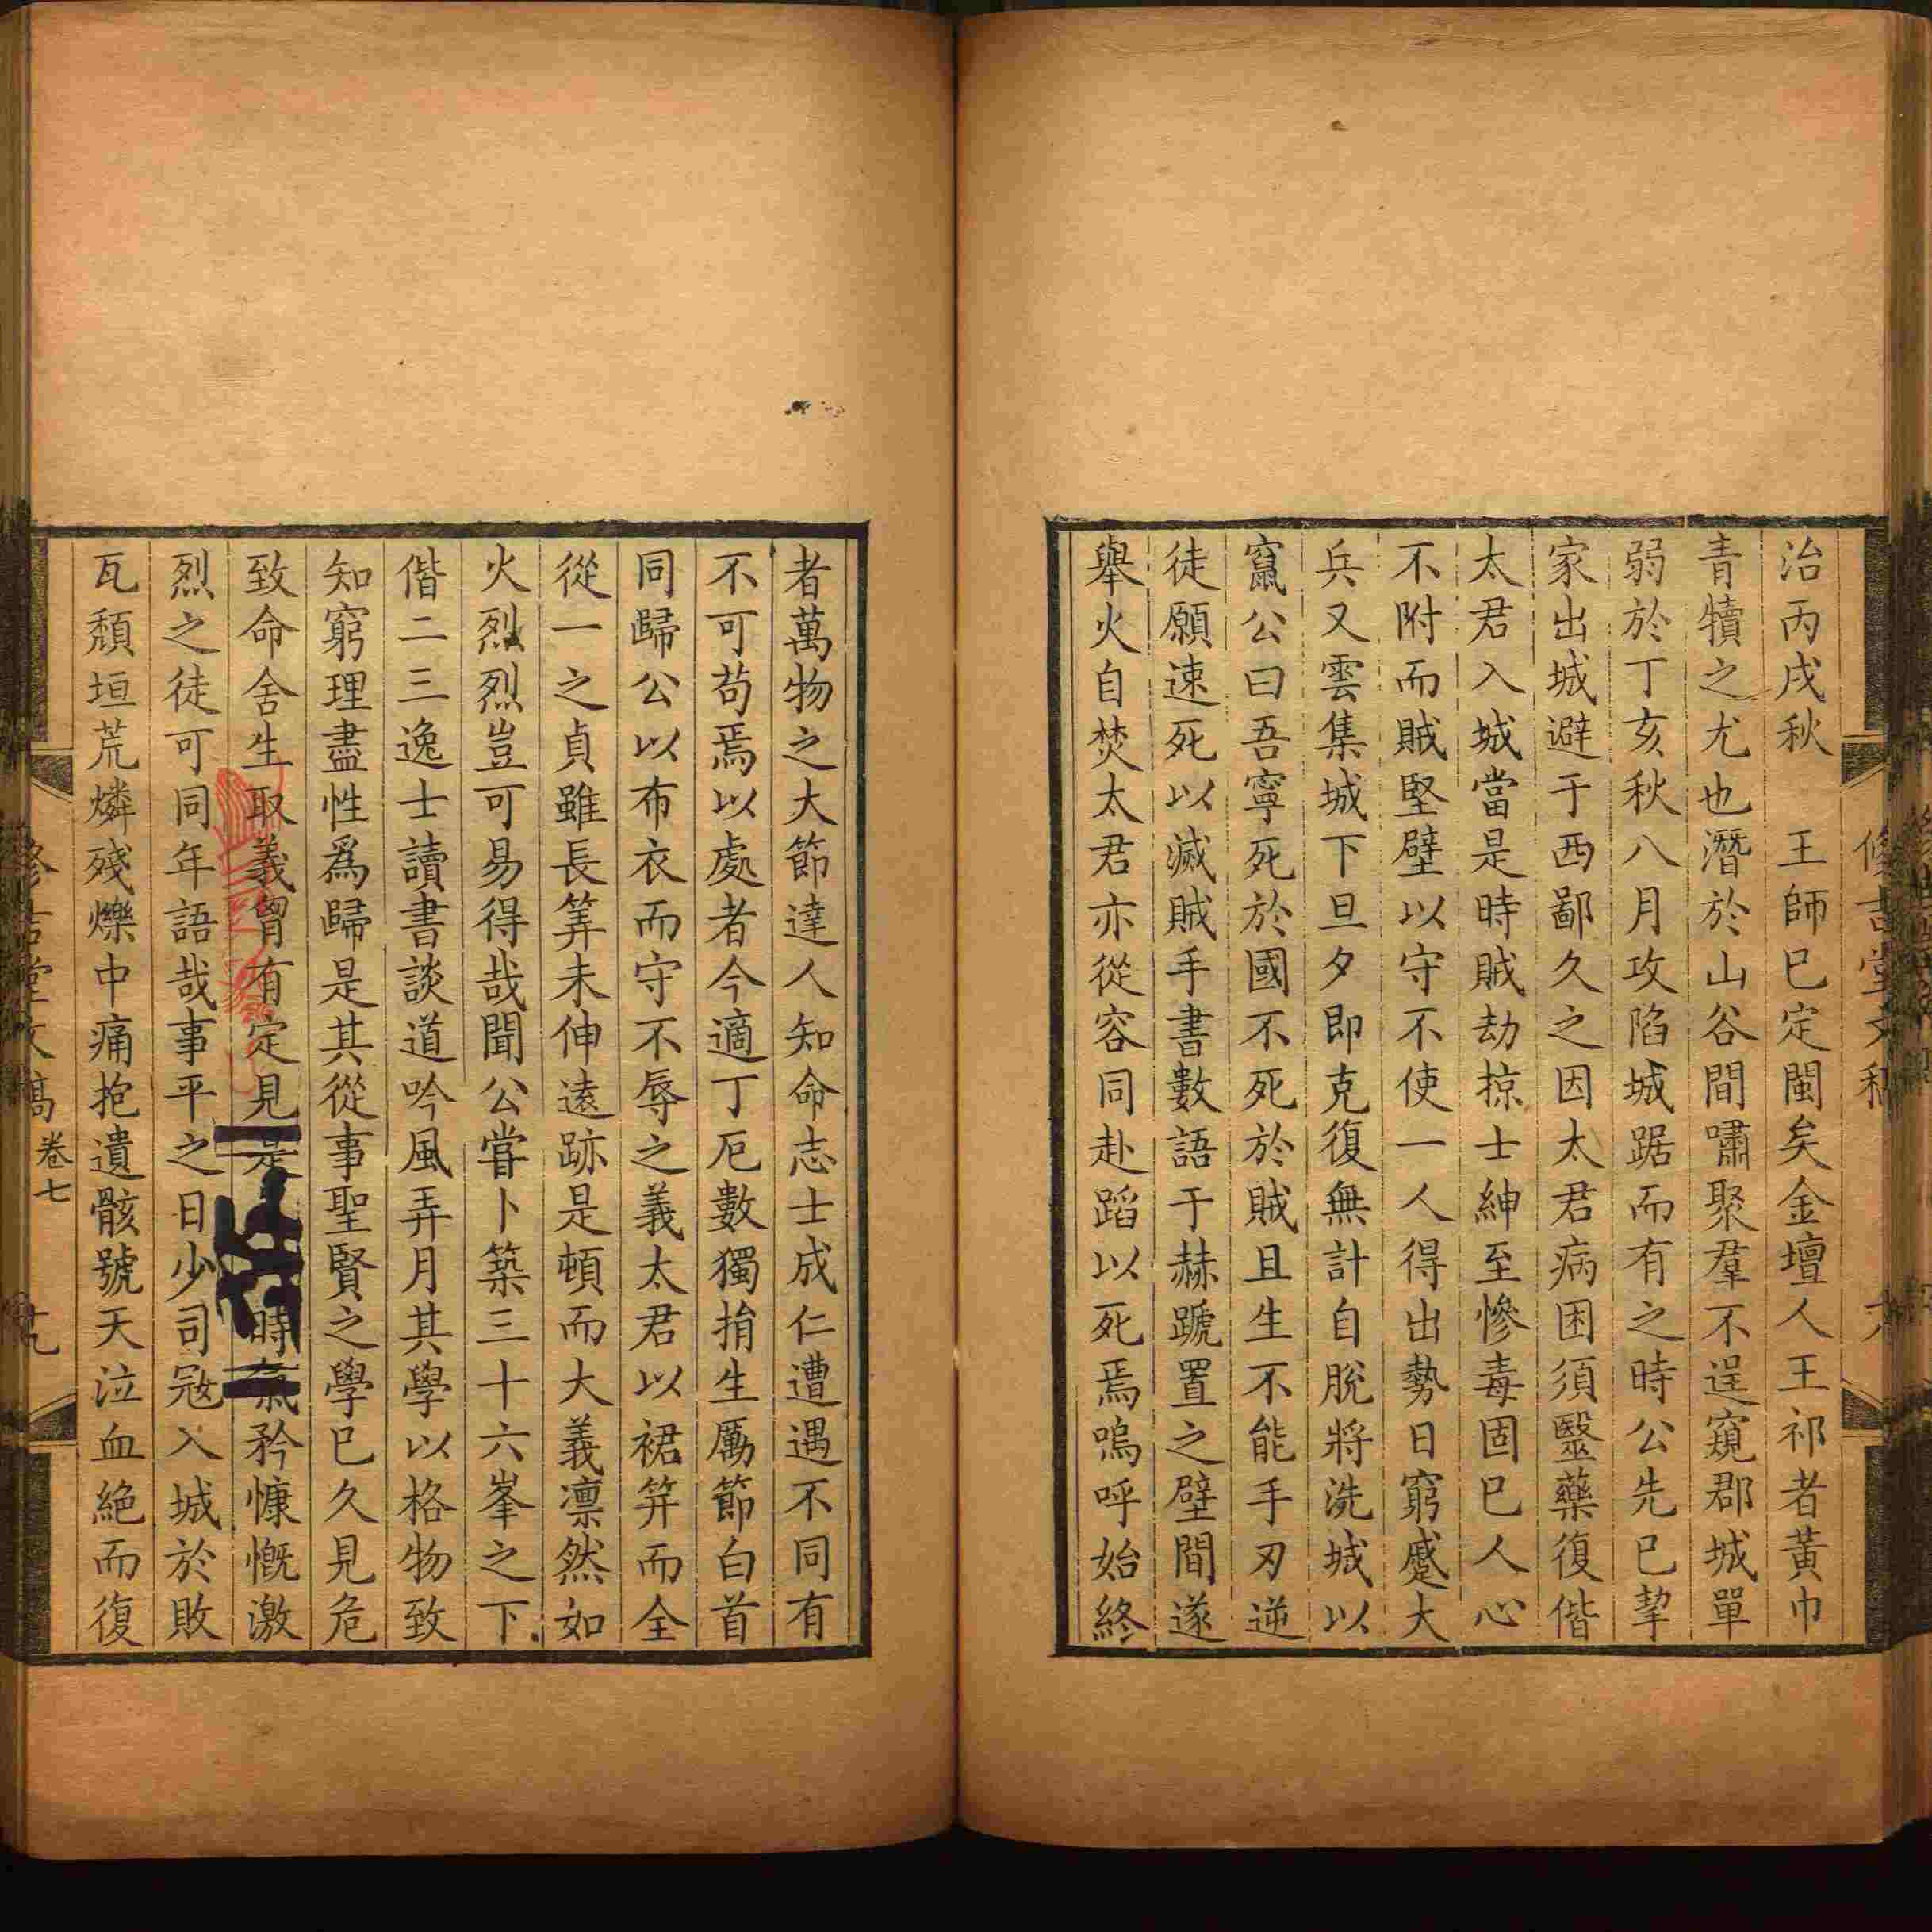 治丙戌秋　王師已定閩矣金壇人王祁者黃巾
青犢之尤也潛於山谷間嘯聚羣不逞窺郡城單
弱於丁亥秋八月攻陷城踞而有之時公先已挈
家出城避于西鄙久之因太君病困須毉藥復偕
太君入城當是時賊劫掠士紳至慘毒固已人心
不附而賊堅壁以守不使一人得出勢日窮蹙大
兵又雲集城下旦夕即克復無計自脫將洗城以
竄公曰吾寧死於國不死於賊且生不能手刃逆
徒願速死以滅賊手書數語于赫蹏置之壁間遂
舉火自焚太君亦從容同赴蹈以死焉嗚呼始終
者萬物之大節達人知命志士成仁遭遇不同有
不可苟焉以處者今適丁厄數獨捐生厲節白首
同歸公以布衣而守不辱之義太君以裙笄而全
從一之貞雖長筭未伸遠跡是頓而大義凛然如
火烈烈豈可易得哉聞公嘗卜築三十六峯之下
偕二三逸士讀書談道吟風弄月其學以格物致
知窮理盡性爲歸是其從事聖賢之學已久見危
致命舍生取義胷有定見是時氣矜慷慨激
烈之徒可同年語哉事平之日少司冦入城於敗
瓦頽垣荒燐殘爍中痛抱遺骸號天泣血絶而復
修吉堂文稿 卷七 十九